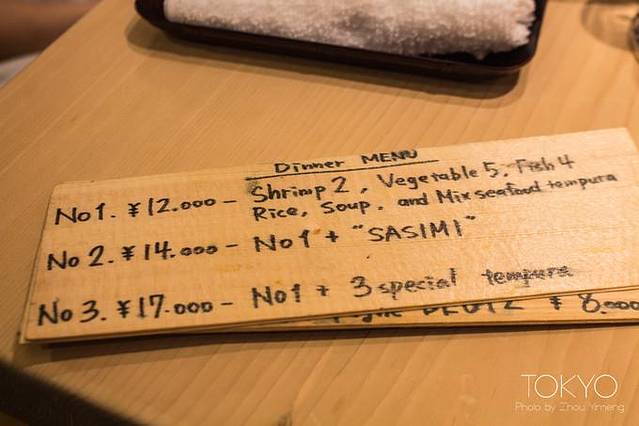 Dinner MENU
No 1. ¥12.000 - Shrimp 2, Vegetable 5, Fish 4
Rice, Soup. and Mix seafood tempura
No 2. ¥14.000 - No 1 + "SASIMI"
No 3. ¥17.000 - No 1 + 3 special tempura
¥ 8.000
TOKYO
Photo by Zhou Yimeng